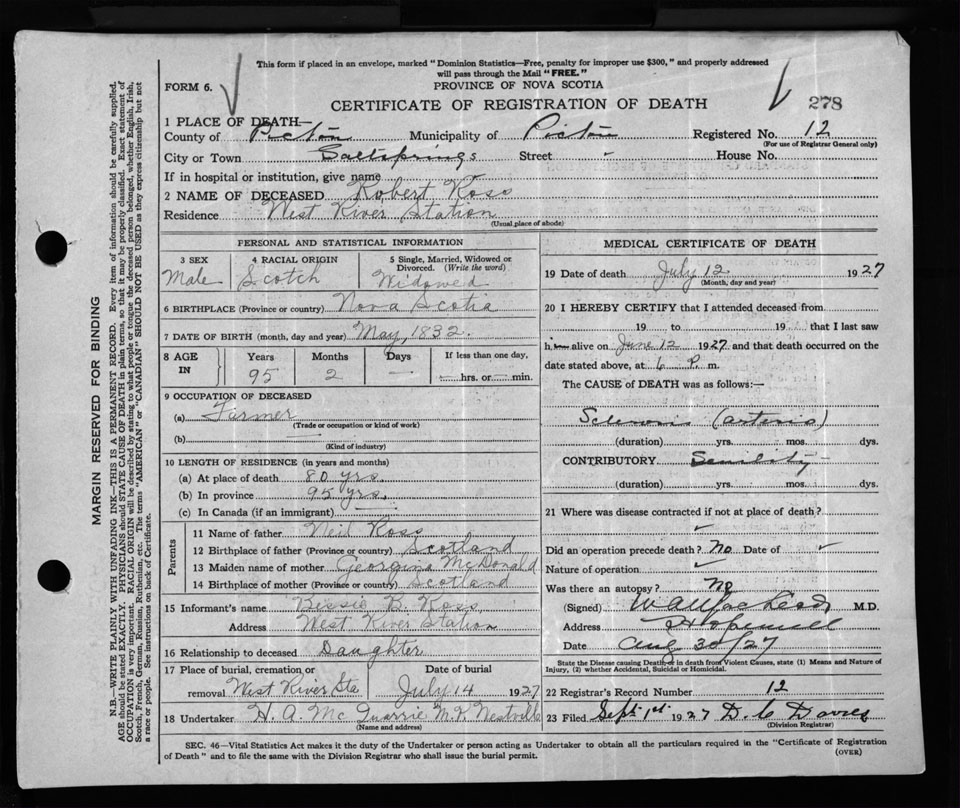 This form if placed in an envelope, marked "Dominion Statistics—Free, penalty for improper use $300," and properly addressed
will pass through the Mail "FREE."
FORM 6.
PROVINCE OF NOVA SCOTIA
CERTIFICATE OF REGISTRATION OF DEATH
278
1 PLACE OF DEATH—
County of Pictou Municipality of Pictou Registered No. 12
(For use of Registrar General only)
City or Town Saltsprings Street House No.
If in hospital or institution, give name
2 NAME OF DECEASED Robert Ross
Residence West River Station
(Usual place of abode)
PERSONAL AND STATISTICAL INFORMATION
3 SEX 4 RACIAL ORIGIN 5 Single, Married, Widowed or Divorced. (Write the word)
Male Scotch Widowed
6 BIRTHPLACE (Province or country) Nova Scotia
7 DATE OF BIRTH (month, day and year) May, 1832
8 AGE IN Years Months Days If less than one day,
95 2 — hrs. or min.
9 OCCUPATION OF DECEASED
(a) Farmer
(Trade or occupation or kind of work)
(b)
(Kind of industry)
10 LENGTH OF RESIDENCE (in years and months)
(a) At place of death 80 yrs.
(b) In province 95 yrs.
(c) In Canada (if an immigrant)
Parents
11 Name of father Neil Ross
12 Birthplace of father (Province or country) Scotland
13 Maiden name of mother Georgina McDonald
14 Birthplace of mother (Province or country) Scotland
15 Informant's name Bessie B. Ross
Address West River Station
16 Relationship to deceased Daughter
17 Place of burial, cremation or removal West River Sta. Date of burial July 14 1927
18 Undertaker H. A. McQuarrie
(Name and address)
MEDICAL CERTIFICATE OF DEATH
19 Date of death July 12 1927
(Month, day and year)
20 I HEREBY CERTIFY that I attended deceased from
19 to 19 that I last saw
him alive on June 12 1927 and that death occurred on the
date stated above, at 6 P. m.
The CAUSE of DEATH was as follows:—
Sclerosis (arterio)
(duration) yrs. mos. dys.
CONTRIBUTORY Senility
(duration) yrs. mos. dys.
21 Where was disease contracted if not at place of death?
Did an operation precede death? No Date of
Nature of operation
Was there an autopsy? No
(Signed) M.D.
Address Hopewell
Date Aug 30/27
State the Disease causing Death, or in death from Violent Causes, state (1) Means and Nature of
Injury, (2) whether Accidental, Suicidal or Homicidal.
22 Registrar's Record Number 12
23 Filed Sept 1st 1927 D. C. Davies
(Division Registrar)
SEC. 46—Vital Statistics Act makes it the duty of the Undertaker or person acting as Undertaker to obtain all the particulars required in the "Certificate of Registration
of Death" and to file the same with the Division Registrar who shall issue the burial permit.
(OVER)
MARGIN RESERVED FOR BINDING
N.B.—WRITE PLAINLY WITH UNFADING INK—THIS IS A PERMANENT RECORD. Every item of information should be carefully supplied.
AGE should be stated EXACTLY. PHYSICIANS should STATE CAUSE OF DEATH in plain terms, so that it may be properly classified. Exact statement of
OCCUPATION is very important. RACIAL ORIGIN will be described by stating to what people or tongue the deceased person belonged, whether English, Irish,
Scotch, French, German, Russian, Ruthenian, etc. The terms "AMERICAN" or "CANADIAN" SHOULD NOT BE USED as they express citizenship but not
a race or people. See instructions on back of Certificate.